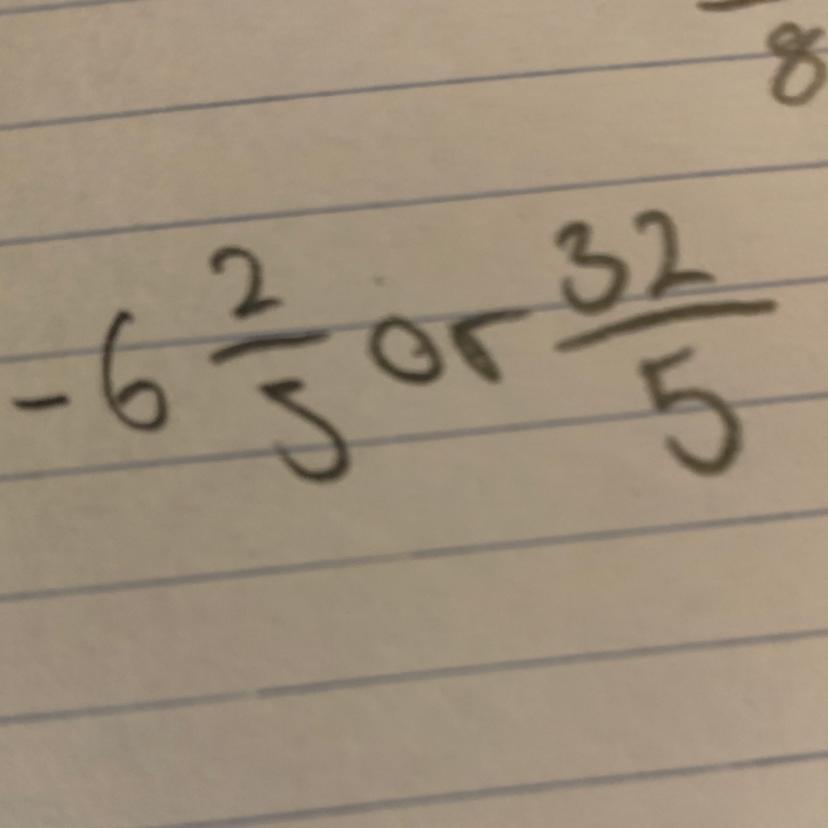 8
-6 2/5 or 32/5